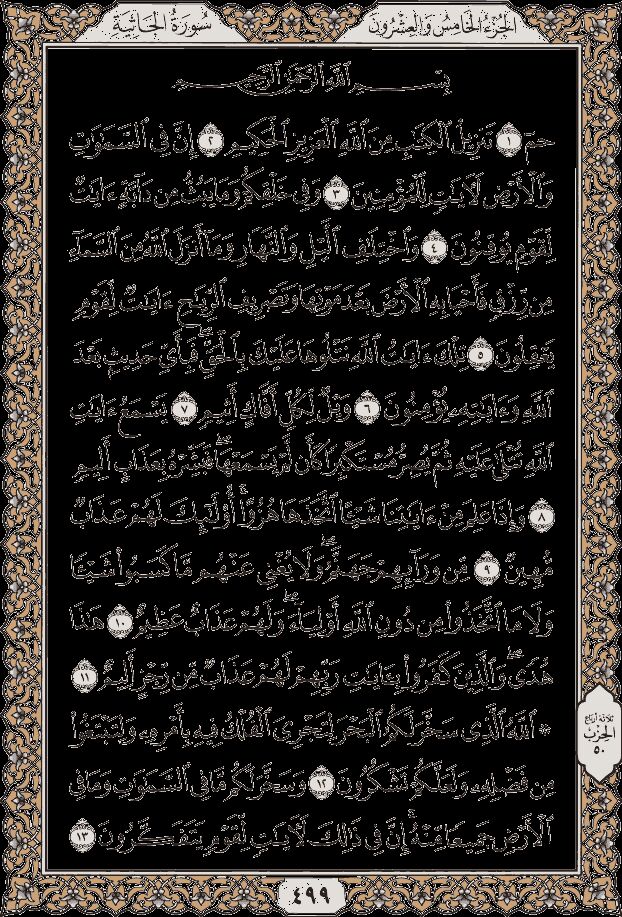 سُورَةُ الجَاثِيَةِ
الجُزْءُ الخَامِسُ وَالعِشْرُونَ
بِسْمِ ٱللَّهِ ٱلرَّحْمَٰنِ ٱلرَّحِيمِ
حمٓ ١ تَنزِيلُ ٱلْكِتَٰبِ مِنَ ٱللَّهِ ٱلْعَزِيزِ ٱلْحَكِيمِ ٢ إِنَّ فِى ٱلسَّمَٰوَٰتِ
وَٱلْأَرْضِ لَءَايَٰتٍ لِّلْمُؤْمِنِينَ ٣ وَفِى خَلْقِكُمْ وَمَا يَبُثُّ مِن دَآبَّةٍ ءَايَٰتٌ
لِّقَوْمٍ يُوقِنُونَ ٤ وَٱخْتِلَٰفِ ٱلَّيْلِ وَٱلنَّهَارِ وَمَآ أَنزَلَ ٱللَّهُ مِنَ ٱلسَّمَآءِ
مِن رِّزْقٍ فَأَحْيَا بِهِ ٱلْأَرْضَ بَعْدَ مَوْتِهَا وَتَصْرِيفِ ٱلرِّيَٰحِ ءَايَٰتٌ لِّقَوْمٍ
يَعْقِلُونَ ٥ تِلْكَ ءَايَٰتُ ٱللَّهِ نَتْلُوهَا عَلَيْكَ بِٱلْحَقِّ ۖ فَبِأَىِّ حَدِيثٍۭ بَعْدَ
ٱللَّهِ وَءَايَٰتِهِۦ يُؤْمِنُونَ ٦ وَيْلٌ لِّكُلِّ أَفَّاكٍ أَثِيمٍ ٧ يَسْمَعُ ءَايَٰتِ
ٱللَّهِ تُتْلَىٰ عَلَيْهِ ثُمَّ يُصِرُّ مُسْتَكْبِرًا كَأَن لَّمْ يَسْمَعْهَا ۖ فَبَشِّرْهُ بِعَذَابٍ أَلِيمٍ
٨ وَإِذَا عَلِمَ مِنْ ءَايَٰتِنَا شَيْـًٔا ٱتَّخَذَهَا هُزُوًا ۚ أُو۟لَٰٓئِكَ لَهُمْ عَذَابٌ
مُّهِينٌ ٩ مِّن وَرَآئِهِمْ جَهَنَّمُ ۖ وَلَا يُغْنِى عَنْهُم مَّا كَسَبُوا۟ شَيْـًٔا
وَلَا مَا ٱتَّخَذُوا۟ مِن دُونِ ٱللَّهِ أَوْلِيَآءَ ۖ وَلَهُمْ عَذَابٌ عَظِيمٌ ١٠ هَٰذَا
هُدًى ۖ وَٱلَّذِينَ كَفَرُوا۟ بِـَٔايَٰتِ رَبِّهِمْ لَهُمْ عَذَابٌ مِّن رِّجْزٍ أَلِيمٌ ١١
۞ ٱللَّهُ ٱلَّذِى سَخَّرَ لَكُمُ ٱلْبَحْرَ لِتَجْرِىَ ٱلْفُلْكُ فِيهِ بِأَمْرِهِۦ وَلِتَبْتَغُوا۟
مِن فَضْلِهِۦ وَلَعَلَّكُمْ تَشْكُرُونَ ١٢ وَسَخَّرَ لَكُم مَّا فِى ٱلسَّمَٰوَٰتِ وَمَا فِى
ٱلْأَرْضِ جَمِيعًا مِّنْهُ ۚ إِنَّ فِى ذَٰلِكَ لَءَايَٰتٍ لِّقَوْمٍ يَتَفَكَّرُونَ ١٣
ثلاثة أرباع
الحزب
٥٠
٤٩٩